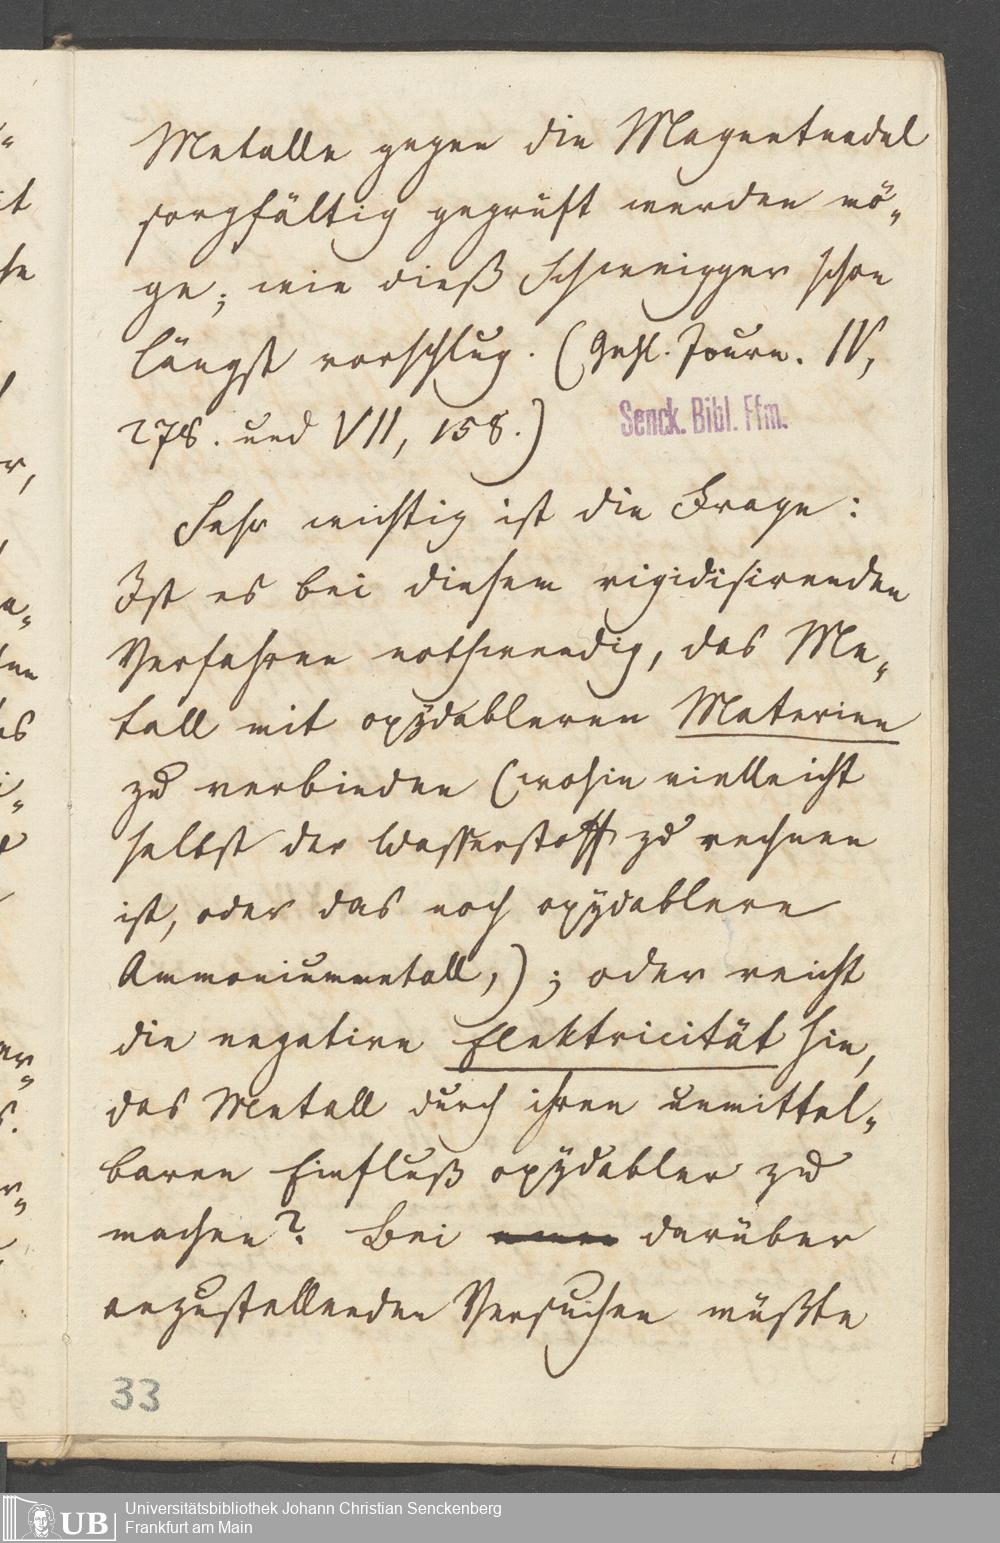 Metalle gegen die Magnetnadel
sorgfältig geprüft werden mö-
ge; wie dieß Schweigger schon
längst vorschlug. (Gehl. Journ. IV,
278. und VII, 158.)
Senck. Bibl. Ffm.
Sehr wichtig ist die Frage:
Ist es bei diesem rigidisirenden
Verfahren nothwendig, das Me-
tall mit oxÿdableren Materien
zu verbinden (wohin vielleicht
selbst der Wasserstoff zu rechnen
ist, oder das noch oxÿdablere
Ammoniummetall,); oder reicht
die negative Elektricität hin,
das Metall durch ihren unmittel-
baren Einfluß oxÿdabler zu
machen? Bei darüber
anzustellenden Versuchen müßte
33
UB
Universitätsbibliothek Johann Christian Senckenberg
Frankfurt am Main